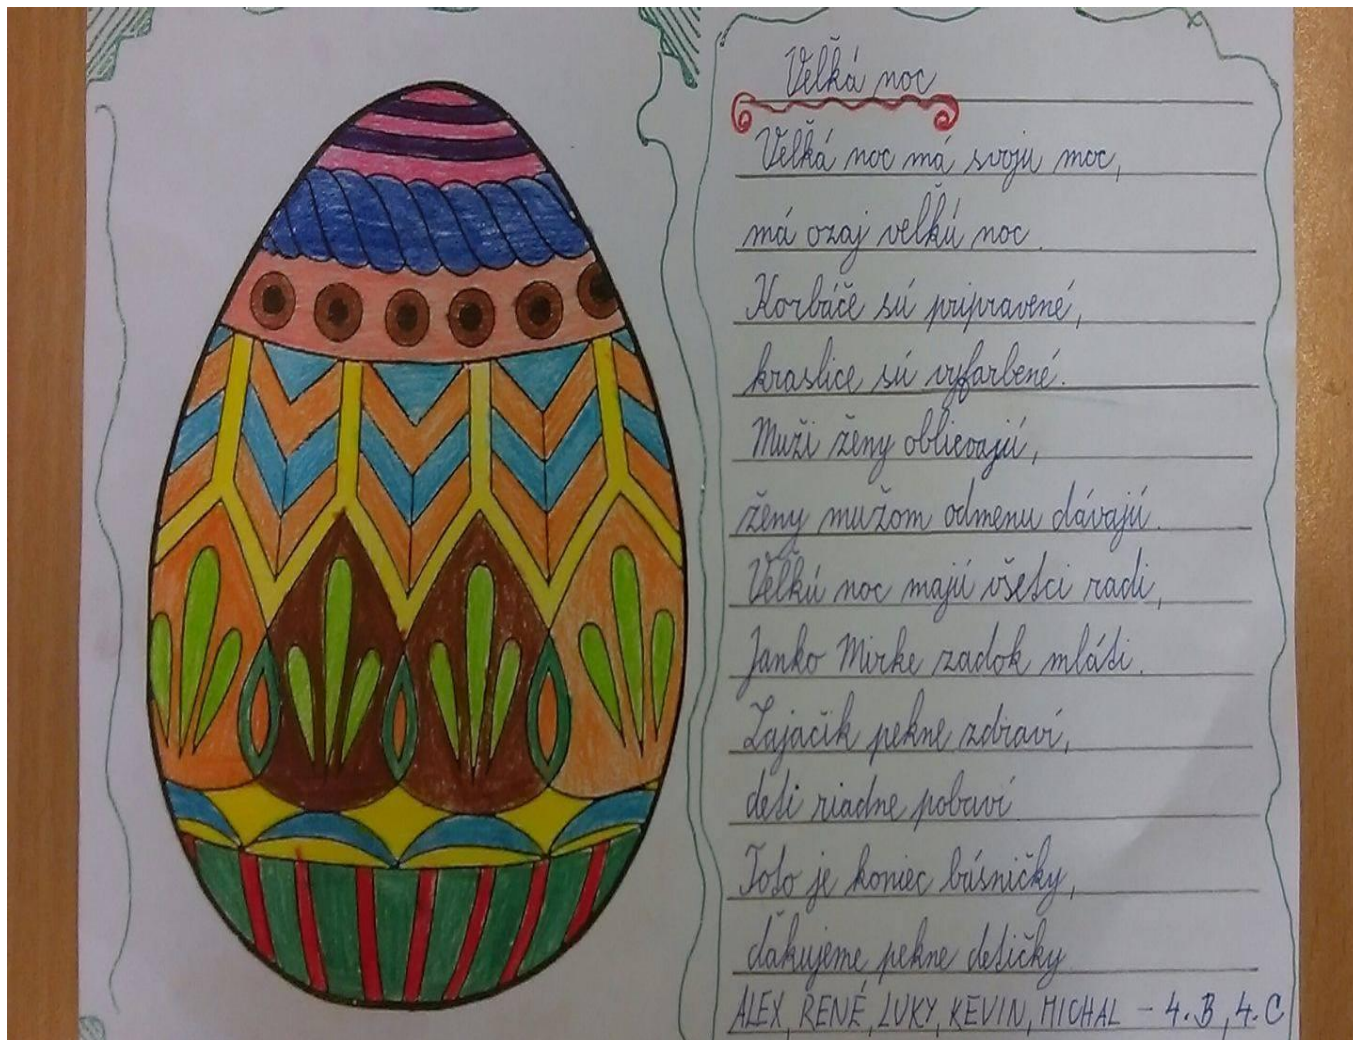 Veľká noc
Veľká noc má svoju moc,
má ozaj veľkú noc.
Korbáče sú pripravené,
kraslice sú vyfarbené.
Muži ženy oblievajú,
ženy mužom odmenu dávajú.
Veľkú noc majú všetci radi,
Janko Mirke zadok mláti.
Zajačik pekne zdraví,
deti riadne pobaví
Toto je koniec básničky,
ďakujeme pekne detičky
ALEX, RENÉ, LUKY, KEVIN, MICHAL - 4.B, 4.C